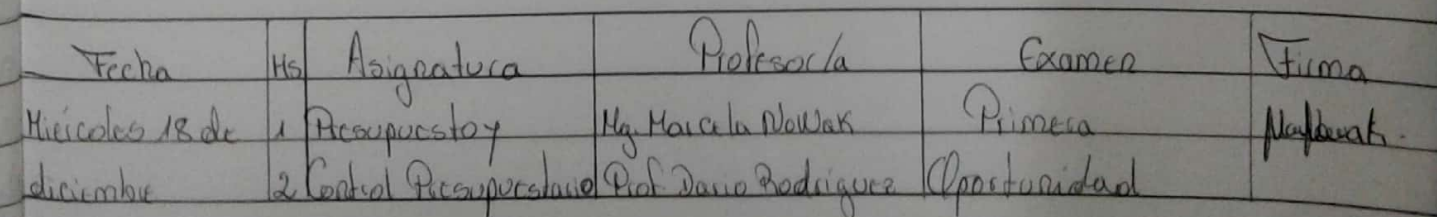 Fecha Hs Asignatura Profesor/a Examen Firma
Miércoles 18 de 1 Presupuesto y Mg. Marcela Nowak Primera
diciembre 2 Control Presupuestario Prof Dario Rodriguez Oportunidad